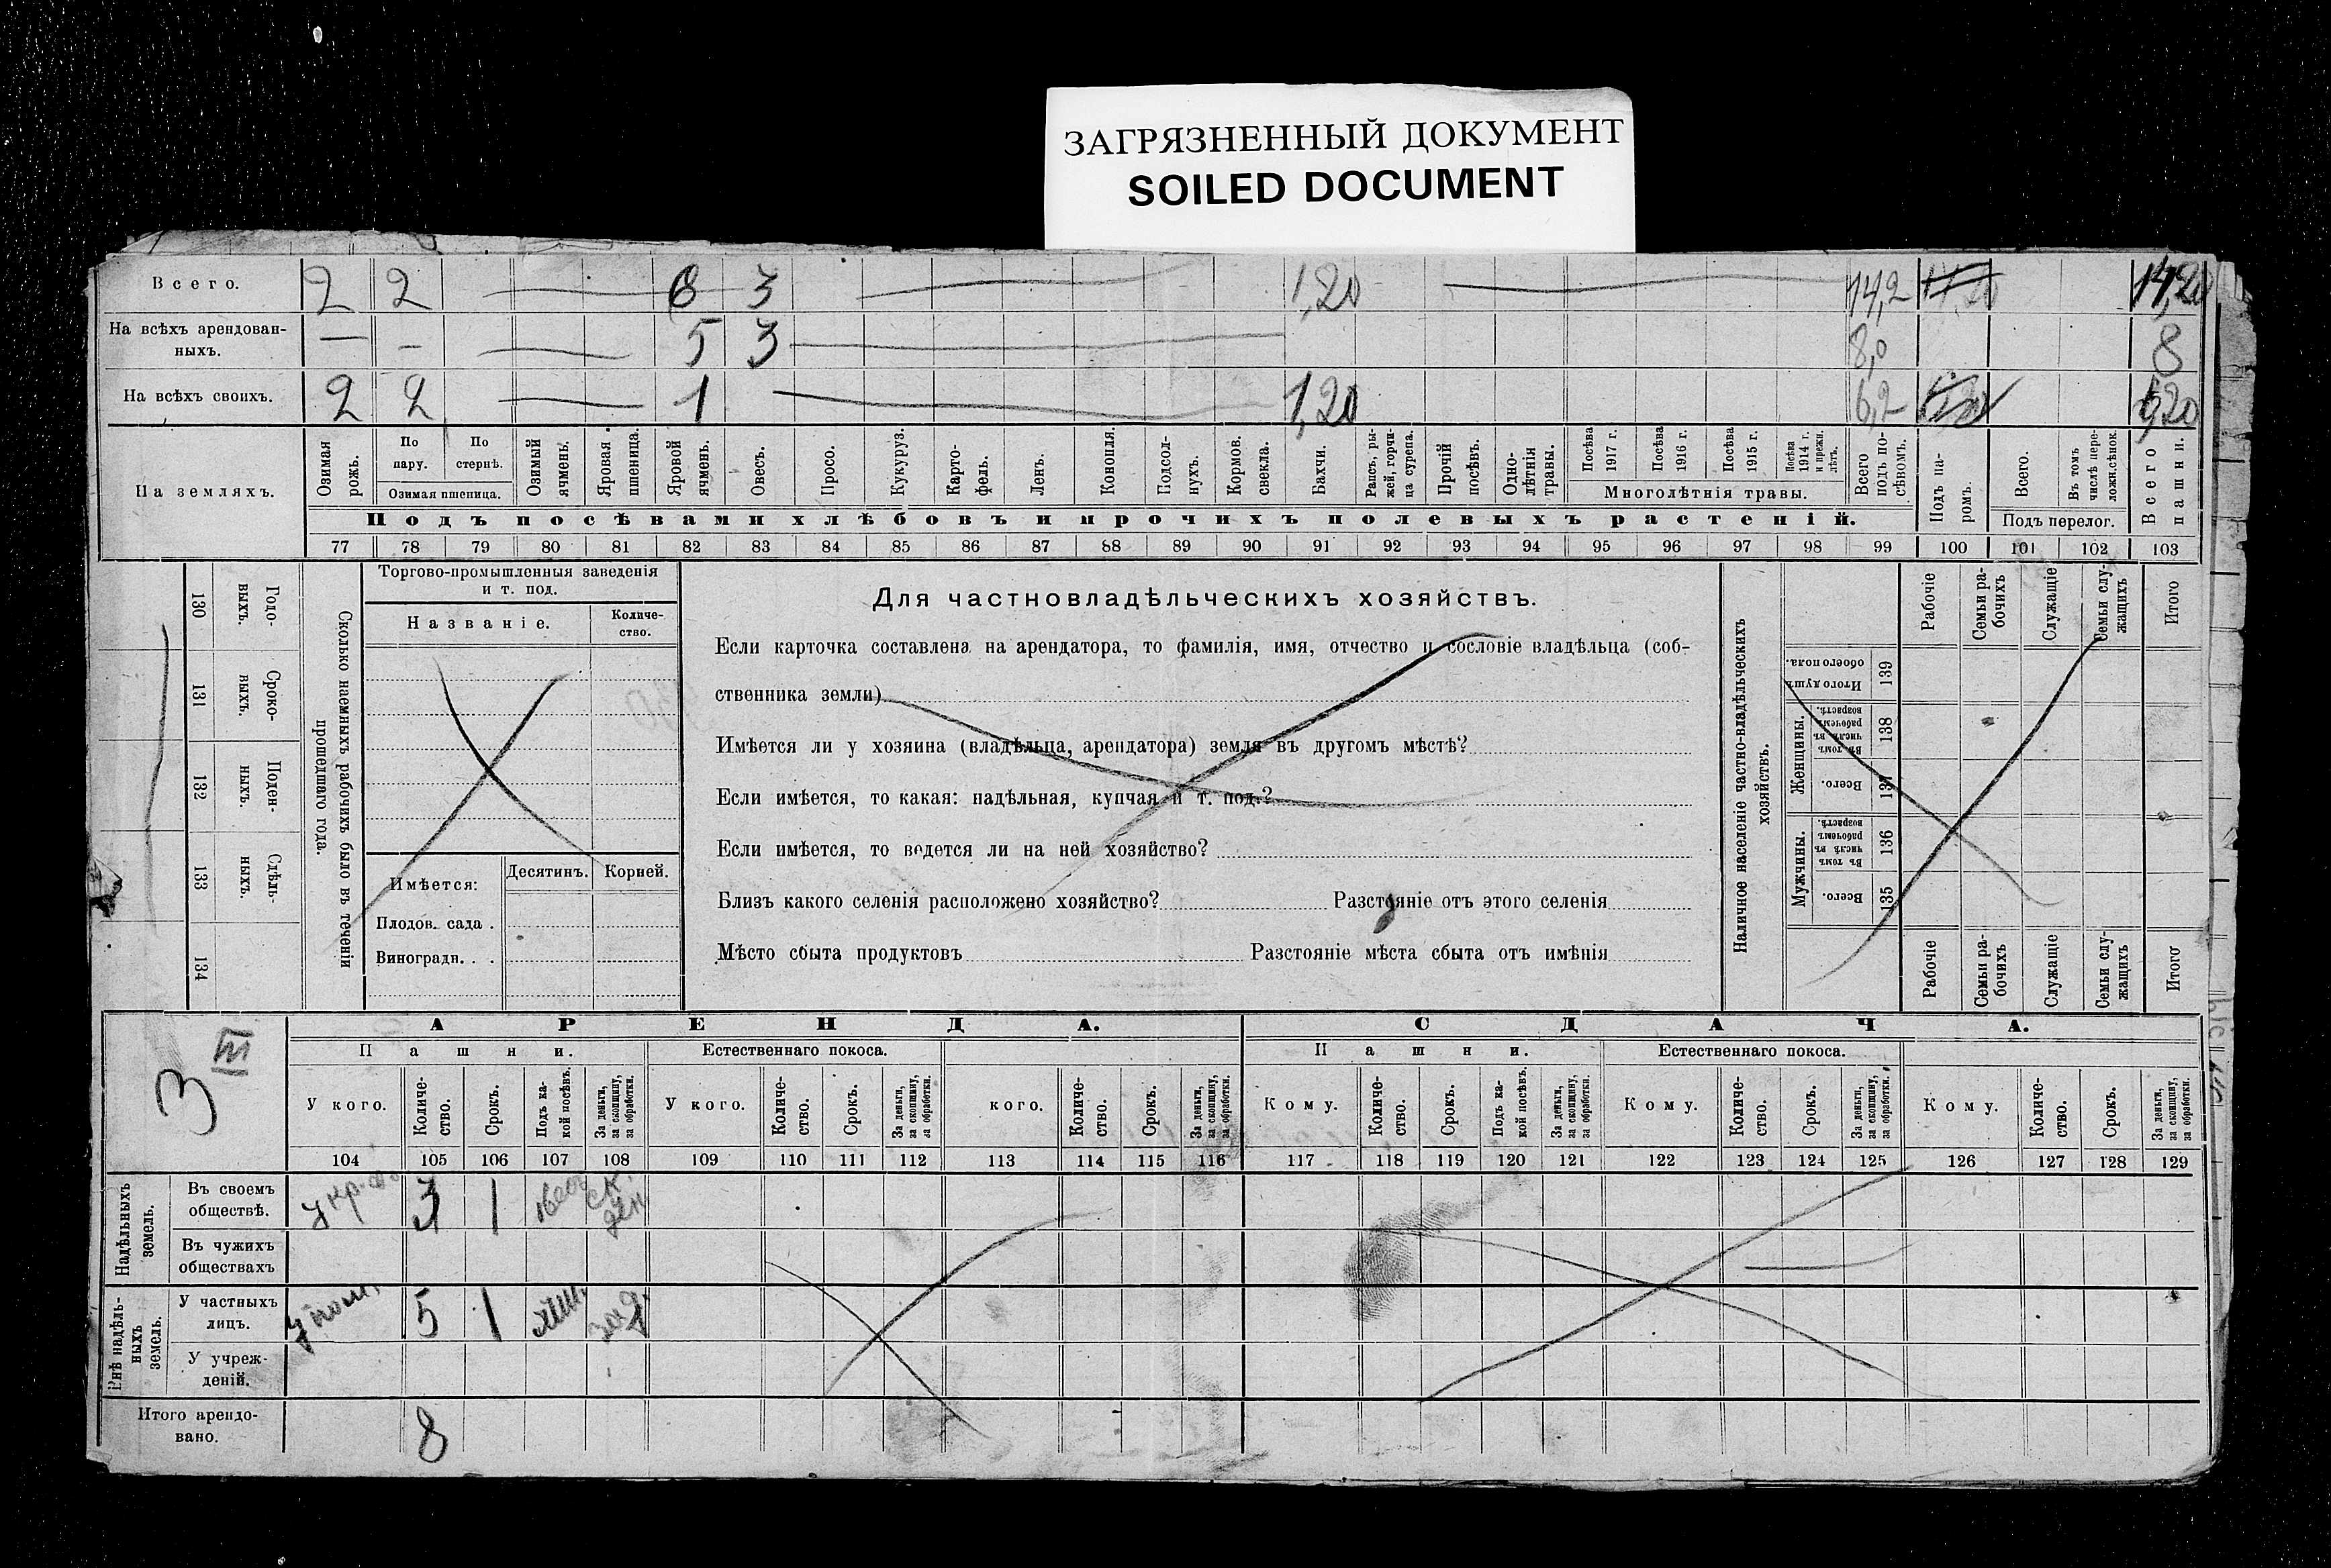 ЗАГРЯЗНЕННЫЙ ДОКУМЕНТ
SOILED DOCUMENT
Всего. 2 2 6 3 1,20 14,2 14,20
На всѣхъ арендованныхъ. — — 5 3 8,0 8
На всѣхъ своихъ. 2 2 1 1,20 6,2 6,20
На земляхъ.
Озимая рожь.
По пару.
По стернѣ.
Озимая пшеница.
Озимый ячмень.
Яровая пшеница.
Яровой ячмень.
Овесъ.
Просо.
Кукуруз.
Карто-фель.
Ленъ.
Конопля.
Подсол-нухъ.
Кормов. свекла.
Бахчи.
Рапсъ, ры-жей, горчи-ца сурепа.
Прочій посѣвъ.
Одно-лѣтнія травы.
Посѣва 1917 г.
Посѣва 1916 г.
Посѣва 1915 г.
Посѣва 1914 г. и прежн. лѣтъ.
Многолѣтнія травы.
Всего подъ по-сѣвомъ.
Подъ па-ромъ.
Всего.
Въ томъ числѣ пере-ложн.сѣнок.
Подъ перелог.
Всего пашни.
Подъ посѣвами хлѣбовъ и прочихъ полевыхъ растеній.
77 78 79 80 81 82 83 84 85 86 87 88 89 90 91 92 93 94 95 96 97 98 99 100 101 102 103
130 Годо-выхъ.
131 Сроко-выхъ.
132 Поден-ныхъ.
133 Сдѣль-ныхъ.
134
Сколько наемныхъ рабочихъ было въ теченіи прошедшаго года.
Торгово-промышленныя заведенія
и т. под.
Названіе. Количе-ство.
Имѣется: Десятинъ. Корней.
Плодов. сада .
Виноградн. . .
Для частновладѣльческихъ хозяйствъ.
Если карточка составлена на арендатора, то фамилія, имя, отчество и сословіе владѣльца (соб-
ственника земли)
Имѣется ли у хозяина (владѣльца, арендатора) земля въ другомъ мѣстѣ?
Если имѣется, то какая: надѣльная, купчая и т. под.?
Если имѣется, то ведется ли на ней хозяйство?
Близъ какого селенія расположено хозяйство? Разстояніе отъ этого селенія
Мѣсто сбыта продуктовъ Разстояніе мѣста сбыта отъ имѣнія
Наличное населеніе частно-владѣльческихъ хозяйствъ.
Рабочіе
Семьи ра-бочихъ
Служащіе
Семьи слу-жащихъ
Итого
Итого душъ обоего пола. 139
Женщины.
Въ томъ числѣ въ рабочемъ возрастѣ. 138
Всего. 137
Мужчины.
Въ томъ числѣ въ рабочемъ возрастѣ. 136
Всего. 135
Рабочіе
Семьи ра-бочихъ
Служащіе
Семьи слу-жащихъ
Итого
3 III
АРЕНДА. СДАЧА.
Пашни. Естественнаго покоса. Пашни. Естественнаго покоса.
У кого. Количе-ство. Срокъ. Подъ ка-кой посѣвъ. За деньги, за скопщину, за обработки.
У кого. Количе-ство. Срокъ. За деньги, за скопщину, за обработки.
кого. Количе-ство. Срокъ. За деньги, за скопщину, за обработки.
Кому. Количе-ство. Срокъ. Подъ ка-кой посѣвъ. За деньги, за скопщину, за обработки.
Кому. Количе-ство. Срокъ. За деньги, за скопщину, за обработки.
Кому. Количе-ство. Срокъ. За деньги, за скопщину, за обработки.
104 105 106 107 108 109 110 111 112 113 114 115 116 117 118 119 120 121 122 123 124 125 126 127 128 129
Надѣльныхъ земель.
Въ своемъ обществѣ. 3 1
Въ чужихъ обществахъ
Внѣ надѣль-ныхъ земель.
У частныхъ лицъ. 5 1
У учреж-деній.
Итого арендо-вано. 8